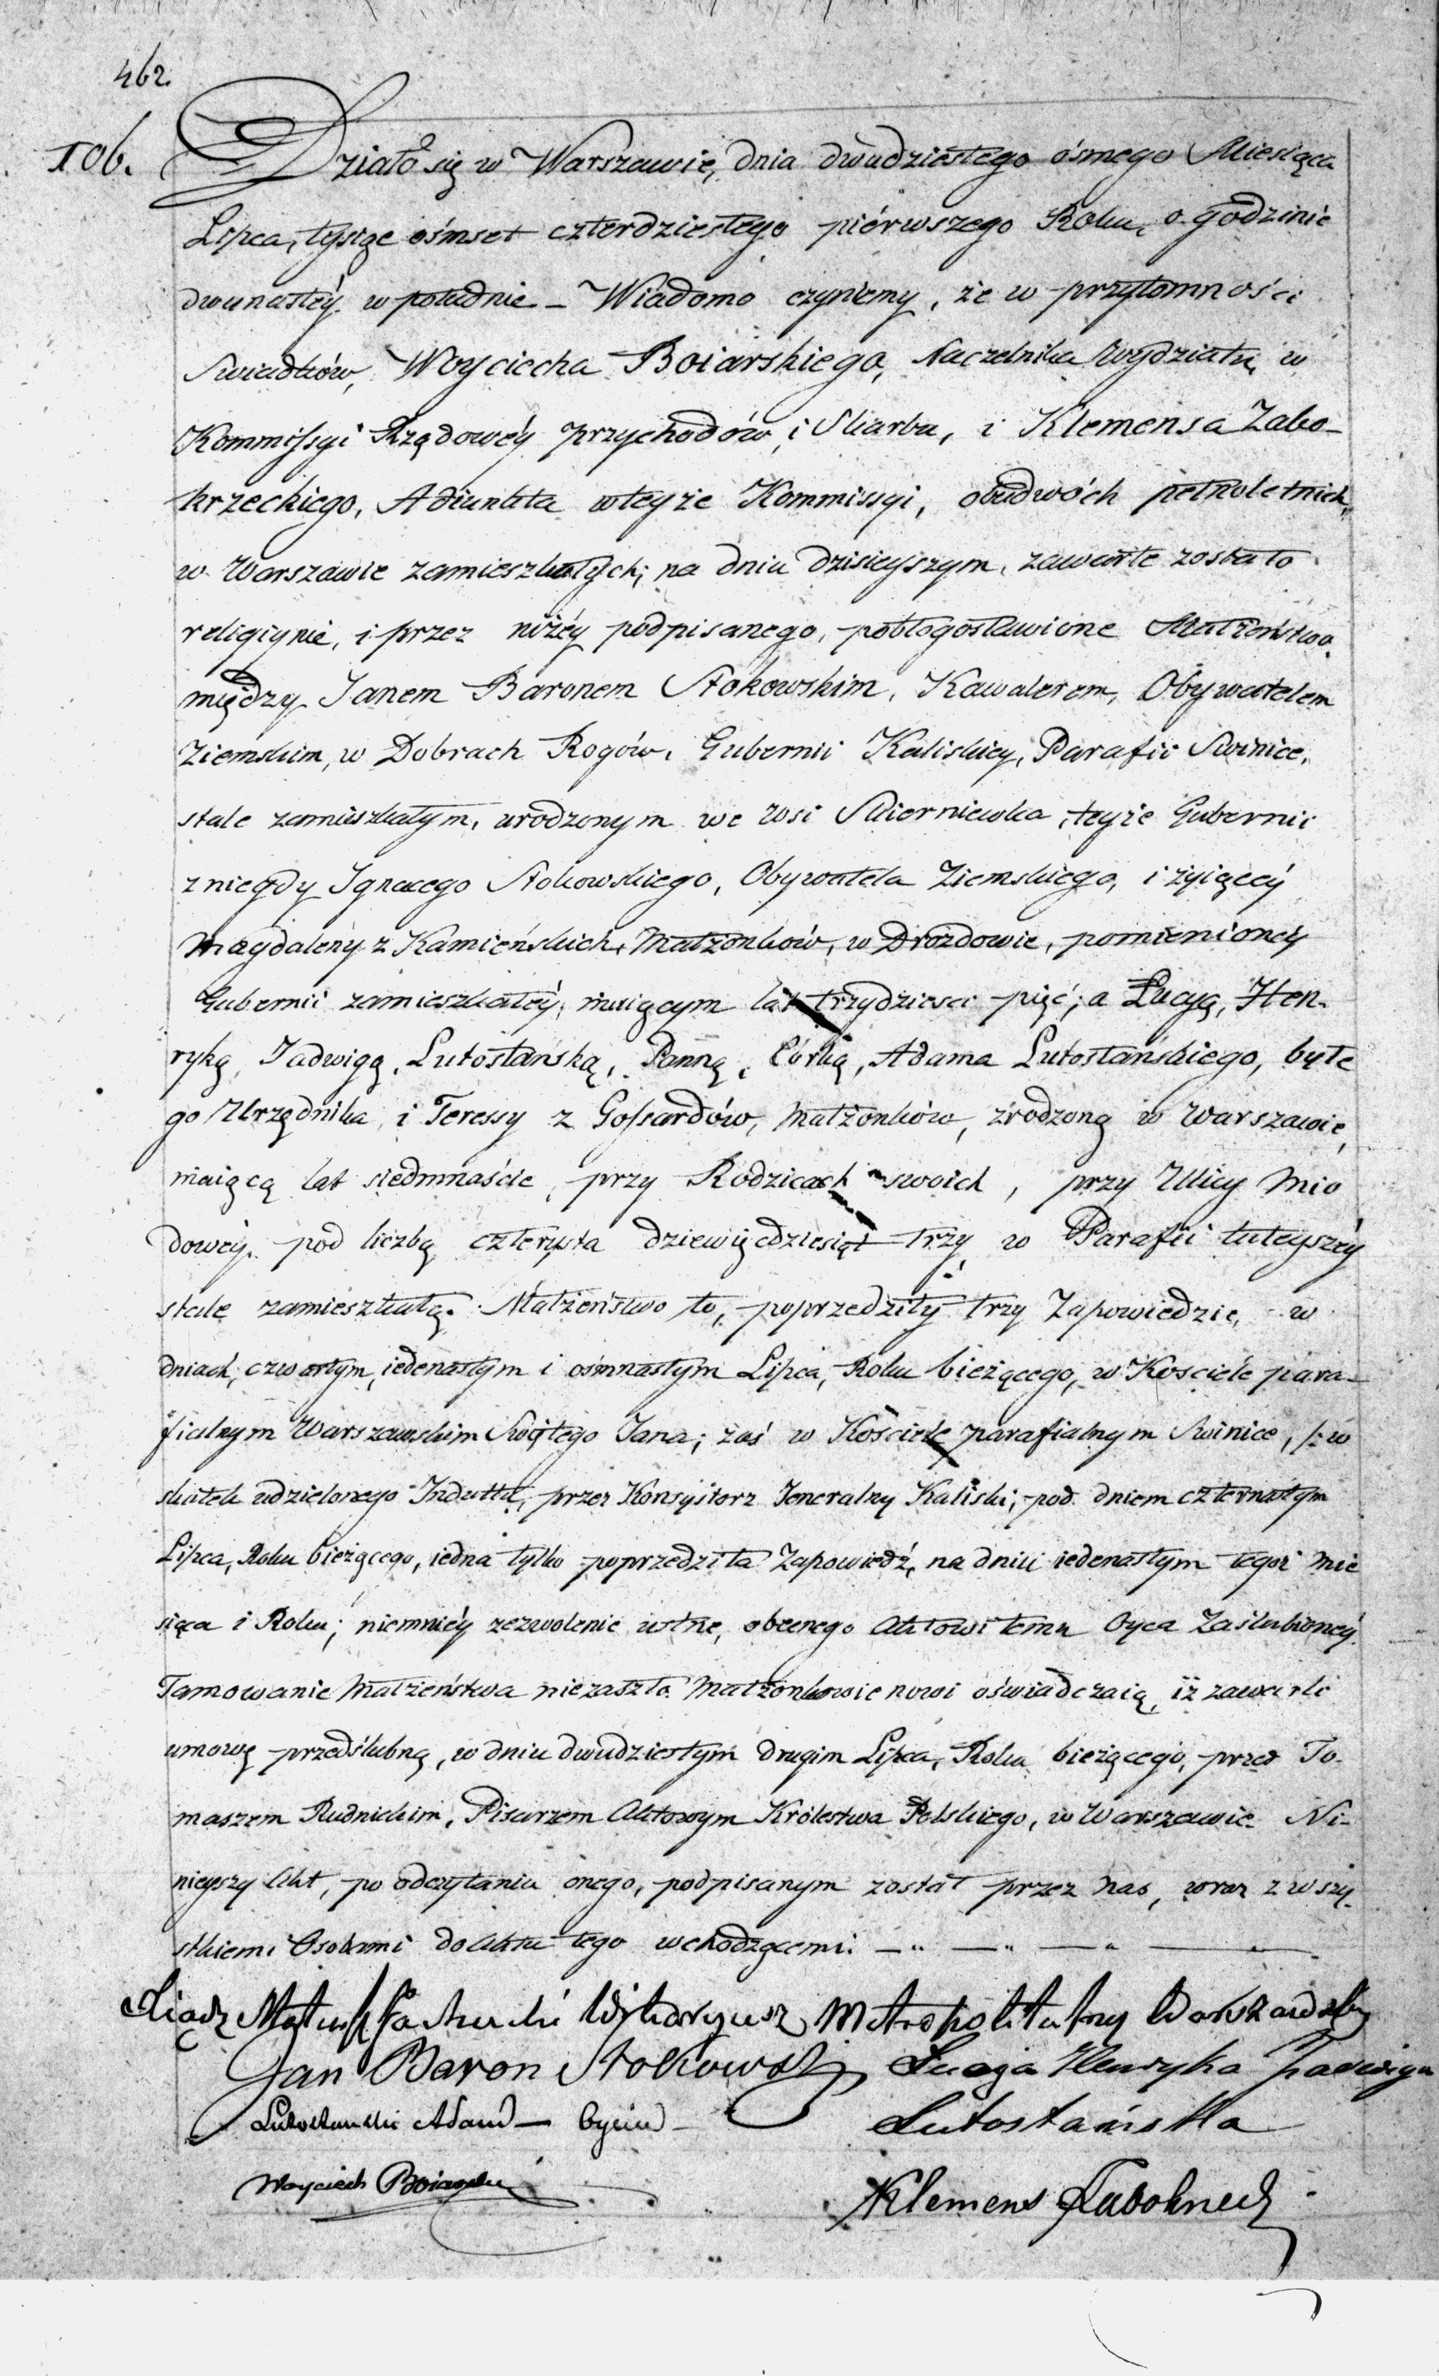 462.
106.
Działo się w Warszawie, dnia dwudziestego ósmego Miesiąca
Lipca, tysiąc ośmset czterdziestego piérwszego Roku, o godzinie
dwunastéy w południe – Wiadomo czyniemy, że w przytomności
Swiadków, Woyciecha Boiarskiego, Naczelnika Wydziału, w
Kommissyi Rządowéy Przychodów i Skarbu, i Klemensa Zabo-
krzeckiego, Adiunkta wteyże Kommissyi, obudwóch pełnoletnich,
w Warszawie zamieszkałych; na dniu dzisieyszym, zawarte zostało
religiynie, i przez niżéy podpisanego, pobłogosławione Małżeństwo,
między Janem Baronem Stokowskim, Kawalerem, Obywatelem
Ziemskim, w Dobrach Rogów, Gubernii Kaliskiey, Parafii Swinice,
stale zamieszkałym, urodzonym we wsi Skierniewka, teyże Gubernii
z niegdy Ignacego Stokowskiego, Obywatela Ziemskiego, i żyiącéy
Magdaleny z Kamieńskich, Małżonków, w Drozdowie, pomienionéy
Gubernii zamieszkałéy; maiącym lat trzydzieści pięć; a Łucyą, Hen-
ryką, Jadwigą, Lutostańską, Panną, Córką, Adama Lutostańskiego, byłe
go Urzędnika, i Teressy z Gossardów, Małżonków, zrodzoną w Warszawie,
maiącą lat siedmnaście, przy Rodzicach swoich, przy Ulicy Mio
dowéy. pod liczbą czterysta dziewięćdziesiąt trzy, w Parafii tuteyszéy
stale zamieszkałą. Małżeństwo to, poprzedziły trzy Zapowiedzie, w
dniach, czwartym, iedenastym i ośmnastym Lipca, Roku bieżącego, w Kościele para-
fialnym Warszawskim Swiętego Jana; zaś w Kościele parafialnym Swinice, /: w
skutek udzielonego Indultu, przez Konsystorz Jeneralny Kaliski, pod dniem czternastym
Lipca, Roku bieżącego, iedna tylko poprzedziła Zapowiedź, na dniu iedenastym tegoż Mie
siąca i Roku; niemniéy zezwolenie ustne, obecnego Aktowi temu Oyca Zaślubionéy.
Tamowanie Małżeństwa niezaszło. Małżonkowie nowi oświadczaią, iż zawarli
umowę przedślubną, w dniu dwudziestym drugim Lipca, Roku bieżącego, przed To-
maszem Rudnickim, Pisarzem Aktowym Królestwa Polskiego, w Warszawie. Ni-
nieyszy Akt, po odczytaniu onego, podpisanym został przez nas, wraz z wszy-
stkiemi Osobami do Aktu tego wchodzącemi. –
Xiądz Wikaryusz Metropolitalny Warszawski
Jan Baron Stokowski Łucya Henryka Jadwiga
Lutostański Adam – Oyciec –
Lutostańska
Woyciech Boiarski
Klemens Zabokrzecki